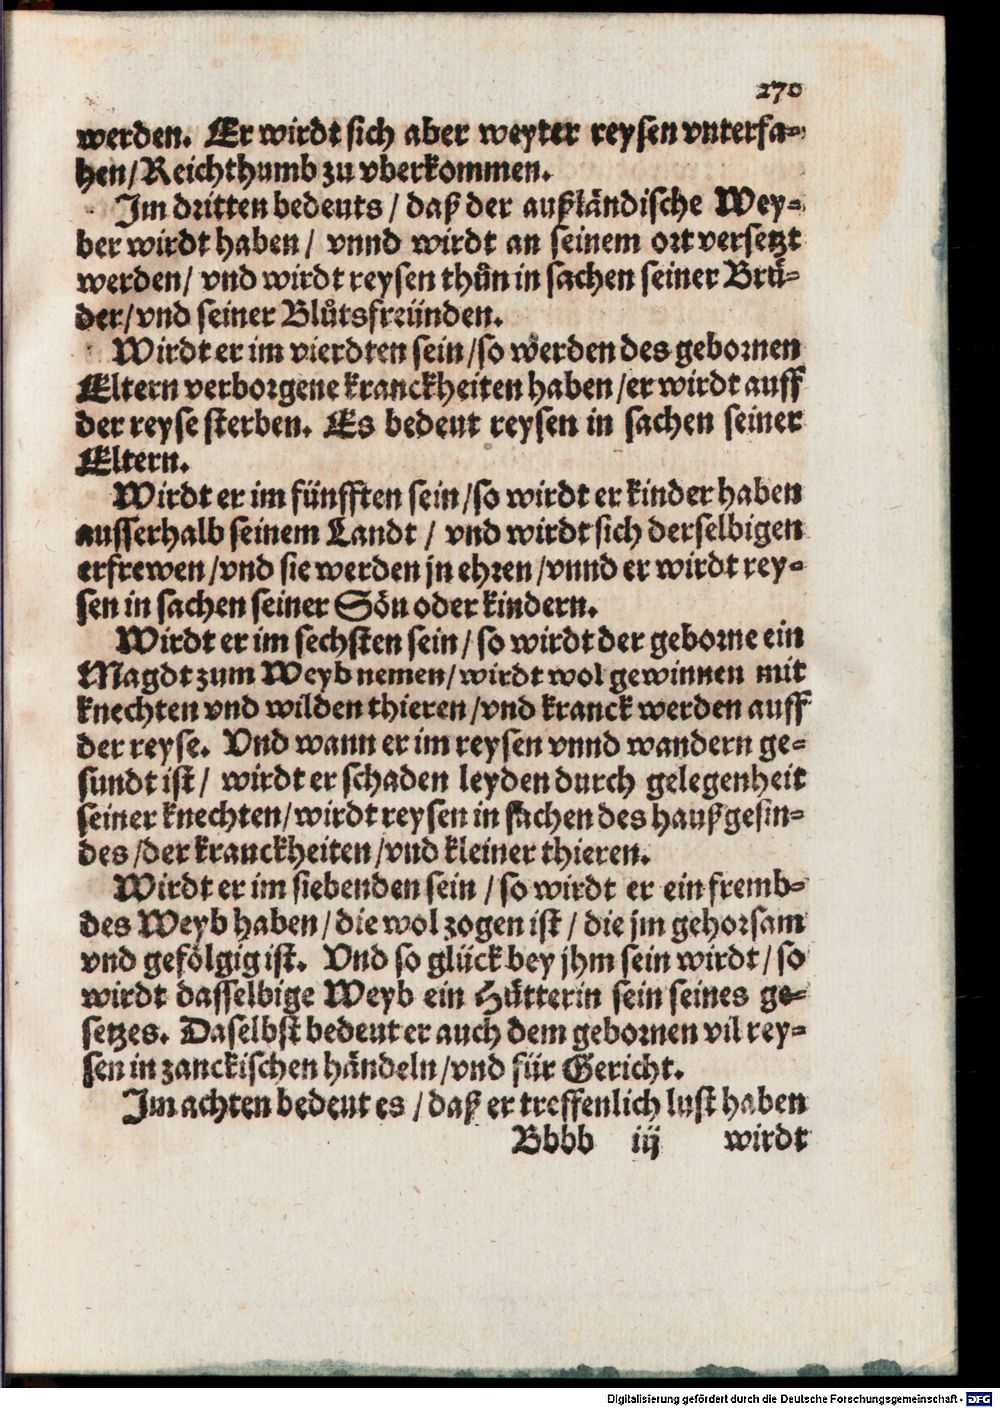 270
werden. Er wirdt sich aber weyter reysen vnterfa-
hen/Reichthumb zu vberkommen.
Im dritten bedeuts / daß der außländische Wey-
ber wirdt haben / vnnd wirdt an seinem ort versetzt
werden/ vnd wirdt reysen thůn in sachen seiner Brü-
der/vnd seiner Blůtsfreünden.
Wirdt er im vierdten sein/so werden des gebornen
Eltern verborgene kranckheiten haben/er wirdt auff
der reyse sterben. Es bedeut reysen in sachen seiner
Eltern.
Wirdt er im fünfften sein/so wirdt er kinder haben
ausserhalb seinem Landt / vnd wirdt sich derselbigen
erfrewen/vnd sie werden jn ehren/vnnd er wirdt rey-
sen in sachen seiner Sön oder kindern.
Wirdt er im sechsten sein/ so wirdt der geborne ein
Magdt zum Weyb nemen/wirdt wol gewinnen mit
knechten vnd wilden thieren/vnd kranck werden auff
der reyse. Vnd wann er im reysen vnnd wandern ge-
sundt ist/ wirdt er schaden leyden durch gelegenheit
seiner knechten/wirdt reysen in sachen des haußgesin-
des/der kranckheiten/vnd kleiner thieren.
Wirdt er im siebenden sein / so wirdt er ein fremb-
des Weyb haben/die wol zogen ist / die jm gehorsam
vnd gefölgig ist. Vnd so glück bey jhm sein wirdt/ so
wirdt dasselbige Weyb ein Hütterin sein seines ge-
setzes. Daselbst bedeut er auch dem gebornen vil rey-
sen in zanckischen händeln/vnd für Gericht.
Im achten bedeut es / daß er treffenlich lust haben
Bbbb iij wirdt
Digitalisierung gefördert durch die Deutsche Forschungsgemeinschaft - DFG